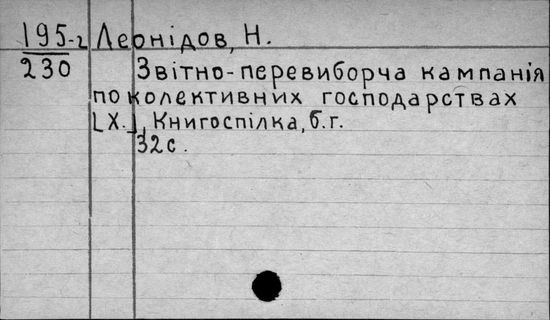 195-г Леонідов, Н.
230 Звітно-перевиборча кампанія
по колективних господарствах
[Х.], Книгоспілка, б.г.
32с.